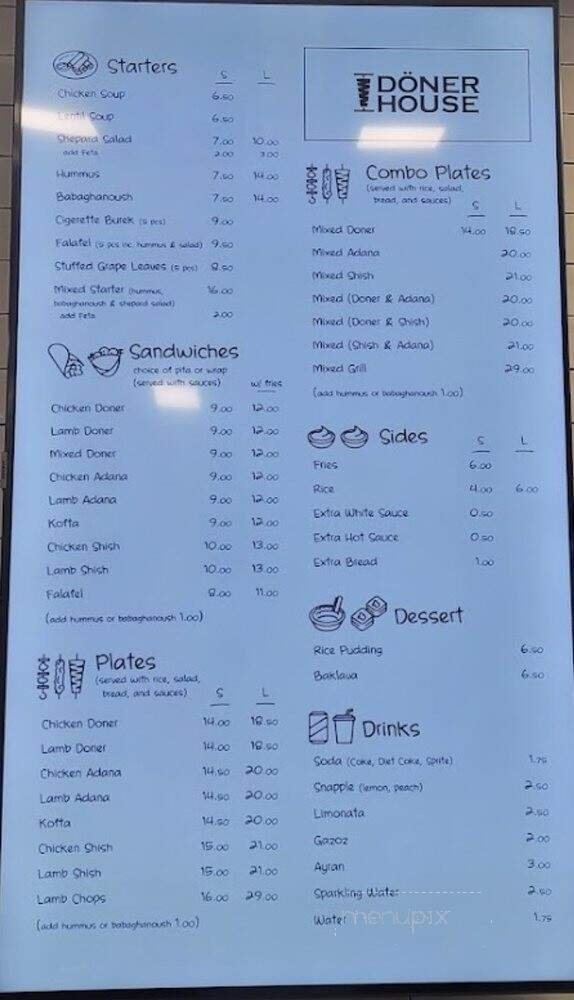 Starters S L
Chicken Soup 6.50
Lentil Soup 6.50
Shepard Salad 7.00 10.00
add Feta 2.00 3.00
Hummus 7.50 14.00
Babaghanoush 7.50 14.00
Cigerette Burek (5 pcs) 9.00
Falafel (5 pcs inc. hummus & salad) 9.50
Stuffed Grape Leaves (5 pcs) 8.50
Mixed Starter (hummus, 16.00
babaghanoush & shepard salad)
add Feta 2.00
Sandwiches
choice of pita or wrap
(served with sauces) w/ fries
Chicken Doner 9.00 12.00
Lamb Doner 9.00 12.00
Mixed Doner 9.00 12.00
Chicken Adana 9.00 12.00
Lamb Adana 9.00 12.00
Kofta 9.00 12.00
Chicken Shish 10.00 13.00
Lamb Shish 10.00 13.00
Falafel 8.00 11.00
(add hummus or babaghanoush 1.00)
Plates
(served with rice, salad,
bread, and sauces) S L
Chicken Doner 14.00 18.50
Lamb Doner 14.00 18.50
Chicken Adana 14.50 20.00
Lamb Adana 14.50 20.00
Kofta 14.50 20.00
Chicken Shish 15.00 21.00
Lamb Shish 15.00 21.00
Lamb Chops 16.00 29.00
(add hummus or babaghanoush 1.00)
DÖNER
HOUSE
Combo Plates
(served with rice, salad,
bread, and sauces) S L
Mixed Doner 14.00 18.50
Mixed Adana 20.00
Mixed Shish 21.00
Mixed (Doner & Adana) 20.00
Mixed (Doner & Shish) 20.00
Mixed (Shish & Adana) 21.00
Mixed Grill 29.00
(add hummus or babaghanoush 1.00)
Sides S L
Fries 6.00
Rice 4.00 6.00
Extra White Sauce 0.50
Extra Hot Sauce 0.50
Extra Bread 1.00
Dessert
Rice Pudding 6.50
Baklava 6.50
Drinks
Soda (Coke, Diet Coke, Sprite) 1.75
Snapple (lemon, peach) 2.50
Limonata 2.50
Gazoz 2.00
Ayran 3.00
Sparkling Water 2.50
Water 1.75
menupix